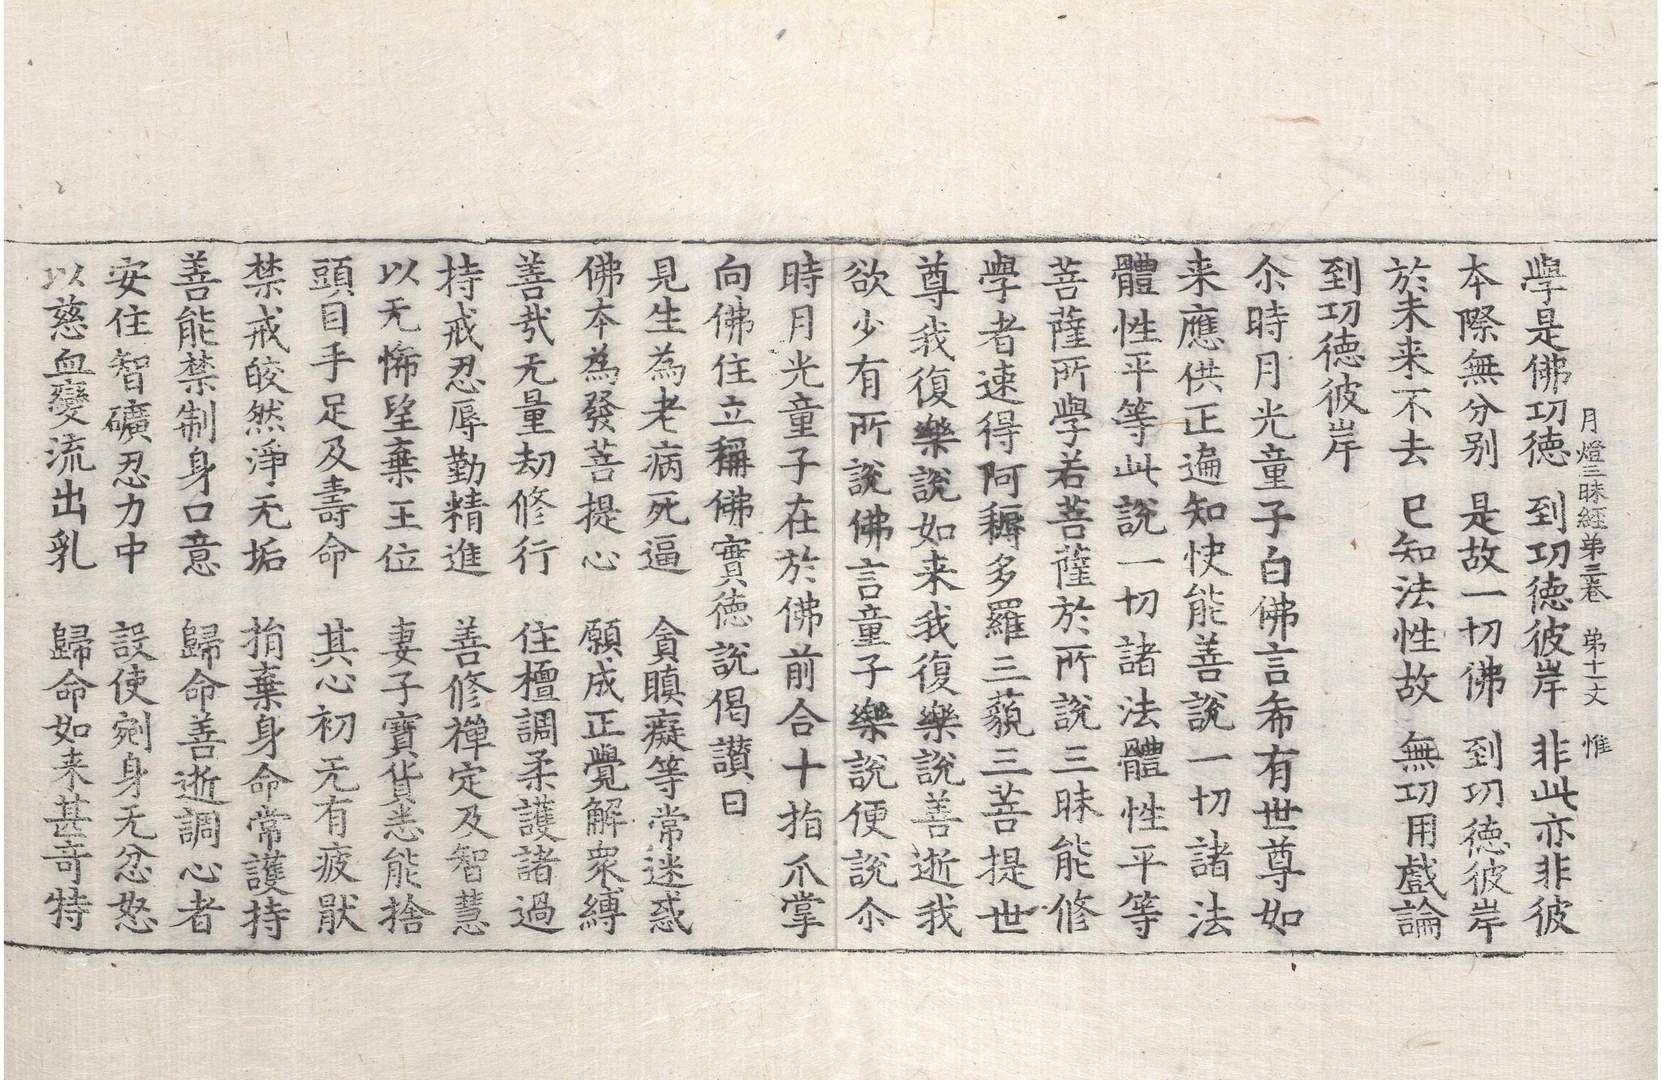 月燈三昧經弟三卷 弟十一丈 惟
學是佛功徳 到功徳彼岸 非此亦非彼
本際無分别 是故一切佛 到功徳彼岸
於未来不去 已知法性故 無功用戲論
到功徳彼岸
尒時月光童子白佛言希有世尊如
来應供正遍知快能善說一切諸法
體性平等此說一切諸法體性平等
菩薩所學若菩薩於所說三昧能修
學者速得阿耨多羅三藐三菩提世
尊我復樂說如来我復樂說善逝我
欲少有所說佛言童子樂說便說尒
時月光童子在於佛前合十指爪掌
向佛住立稱佛實徳說偈讃曰
見生為老病死逼 貪瞋癡等常迷惑
佛本為發菩提心 願成正覺解衆縛
善㢤无量劫修行 住檀調柔護諸過
持戒忍辱勤精進 善修禪定及智慧
以无悕望棄王位 妻子寶貨悉能捨
頭目手足及壽命 其心初无有疲猒
禁戒皎然淨无垢 捐棄身命常護持
善能禁制身口意 歸命善逝調心者
安住智礦忍力中 設使剜身无忿怒
以慈血變流出乳 歸命如来甚竒特